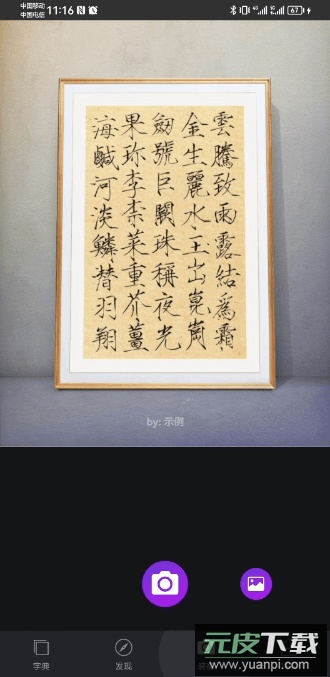 中国移动
中国电信
11:16
67
雲騰致雨露結爲霜
金生麗水玉出崑崗
劒號巨闕珠稱夜光
果珎李柰菜重芥薑
海鹹河淡鱗替羽翔
by: 示例
字典
发现
元皮下载
www.yuanpi.com